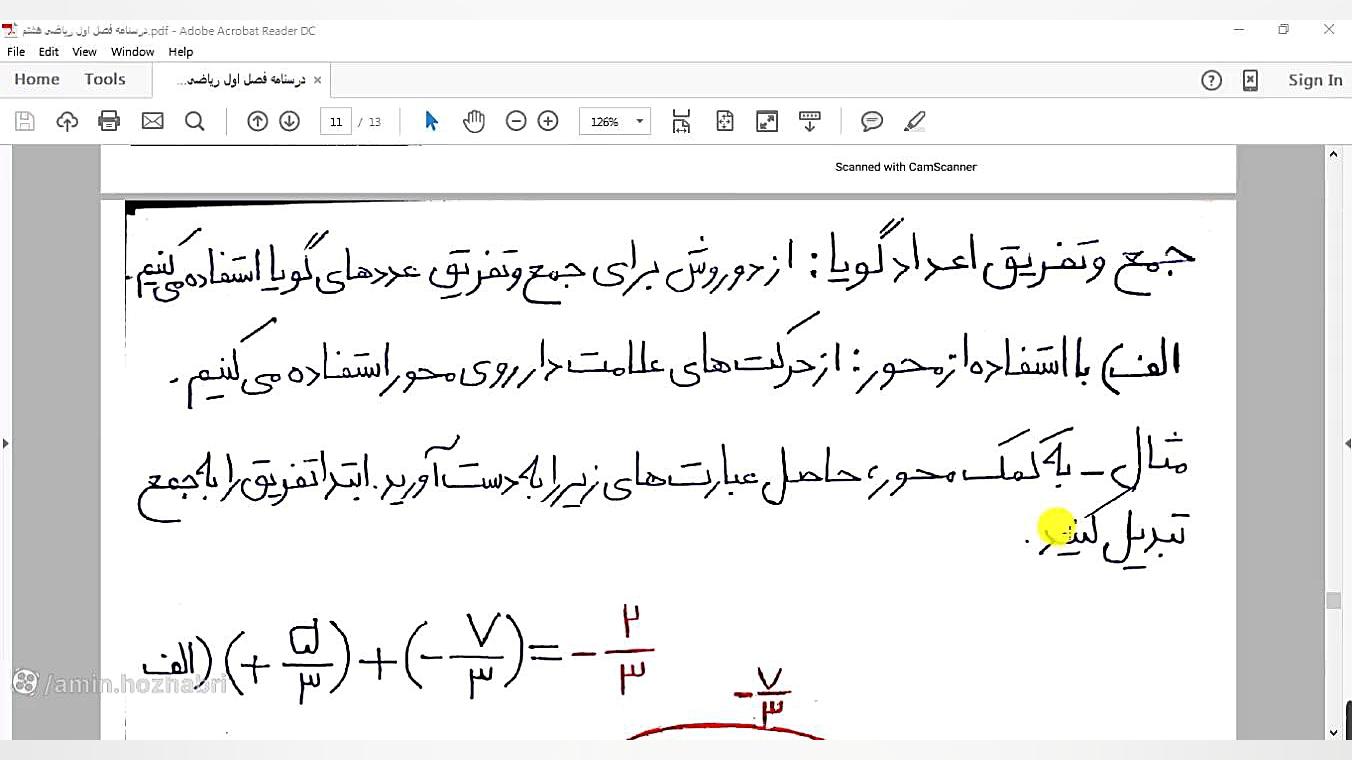 درسنامه فصل اول ریاضی هشتم.pdf - Adobe Acrobat Reader DC
File Edit View Window Help
Home Tools درسنامه فصل اول ریاضی... × Sign In
11 / 13 126%
Scanned with CamScanner
جمع و تفریق اعداد گویا: از دو روش برای جمع و تفریق عددهای گویا استفاده می‌کنیم.
الف) با استفاده از محور: از حرکت‌های علامت دار روی محور استفاده می‌کنیم.
مثال - به کمک محور، حاصل عبارت‌های زیر را به دست آورید. ابتدا تفریق را به جمع
تبدیل کنید.
الف) (+۵/۳) + (-۷/۳) = -۲/۳
-۷/۳
/amin.hozhabri